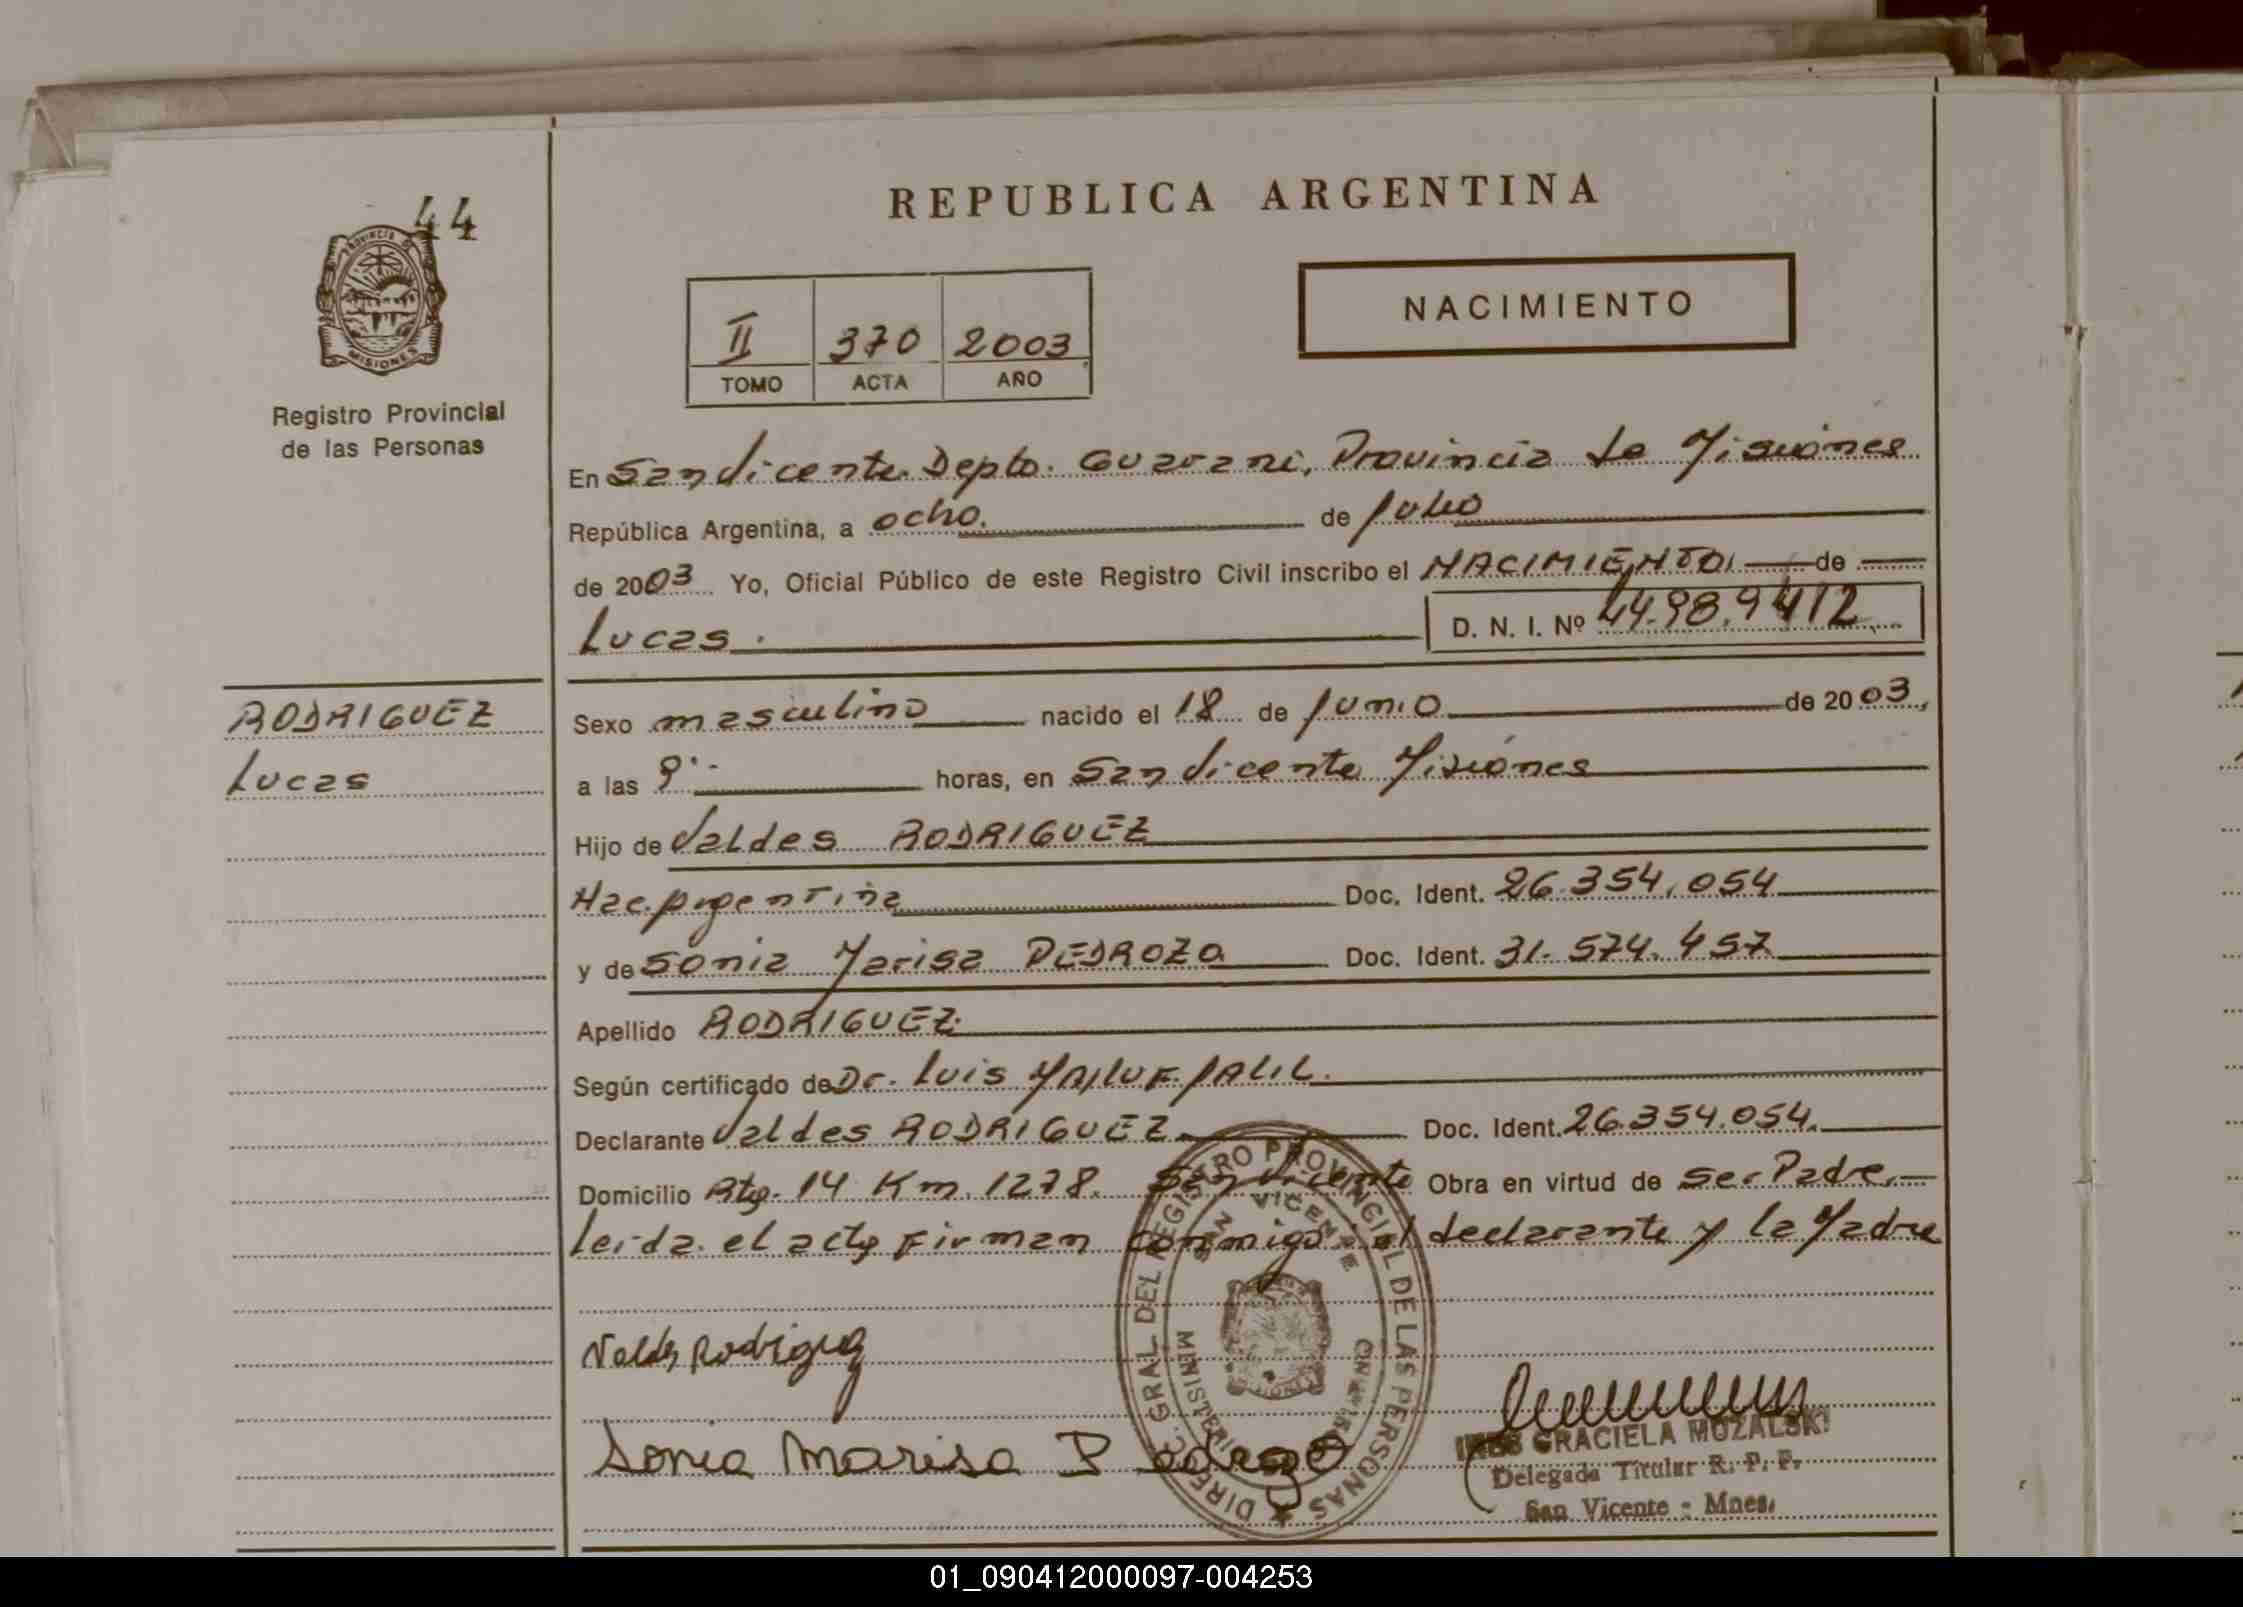 44
REPUBLICA ARGENTINA
PROVINCIA DE
MISIONES
Registro Provincial
de las Personas
II 370 2003
TOMO ACTA AÑO
NACIMIENTO
En San Vicente Depto. Guarani, Provincia de Misiones
República Argentina, a ocho. de Julio
de 2003 Yo, Oficial Público de este Registro Civil inscribo el NACIMIENTO de
Lucas. D. N. I. Nº 44.989.412
RODRIGUEZ
Lucas
Sexo masculino nacido el 18 de Junio de 2003,
a las 9 horas, en San Vicente Misiones
Hijo de Valdes RODRIGUEZ
Nac. Argentina Doc. Ident. 26.354.054
y de Sonia Marisa PEDROZO Doc. Ident. 31.574.457
Apellido RODRIGUEZ
Según certificado de Dr. Luis JALIL.
Declarante Valdes RODRIGUEZ Doc. Ident. 26.354.054.
Domicilio Rta. 14 Km. 1278. San Vicente Obra en virtud de ser Padre.
Leida el acta firman conmigo el declarante y la Madre
Valdes Rodriguez
Sonia Marisa Pedrozo
DIREC. GRAL DEL REGISTRO PROVINCIAL DE LAS PERSONAS
SAN VICENTE
MINISTERIO
GRACIELA MOZALSKI
Delegada Titular R. P. P.
San Vicente - Mnes.
01_090412000097-004253